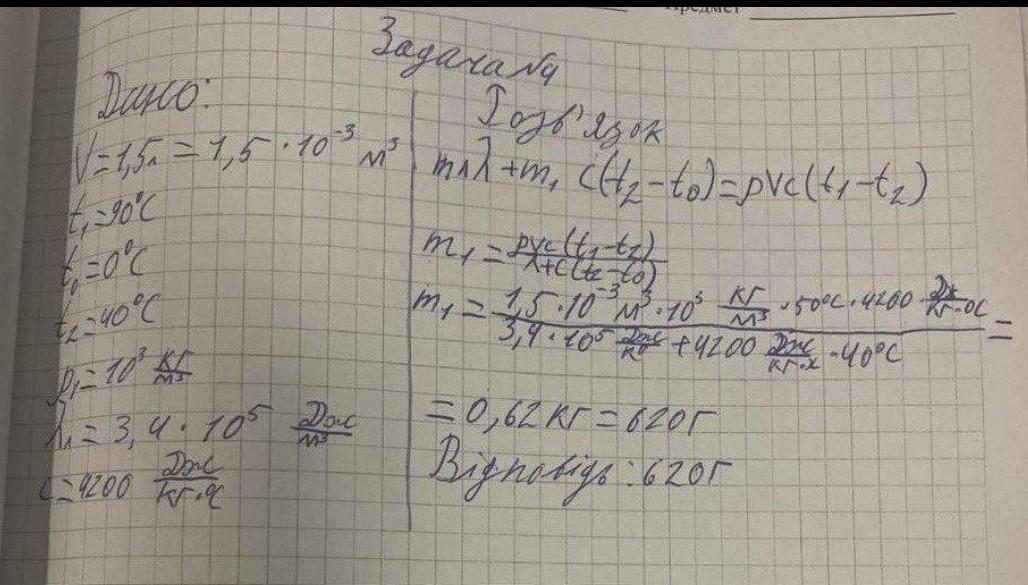 Предмет
Задача №4
Дано:
V=1,5л = 1,5 · 10⁻³ м³
t₁=90°C
t₀=0°C
t₂=40°C
ρ₁=10³ кг/м³
λл = 3,4 · 10⁵ Дж/м³
c=4200 Дж/кг·°C
Розв'язок
mлλ + m₁ c(t₂-t₀)=ρVc(t₁-t₂)
m₁ = ρVc(t₁-t₂)/λ+c(t₂-t₀)
m₁ = 1,5·10⁻³ м³ · 10³ кг/м³ · 50°C · 4200 Дж/кг·°C / 3,4·10⁵ Дж/кг + 4200 Дж/кг·°C · 40°C =
= 0,62 кг = 620г
Відповідь: 620г